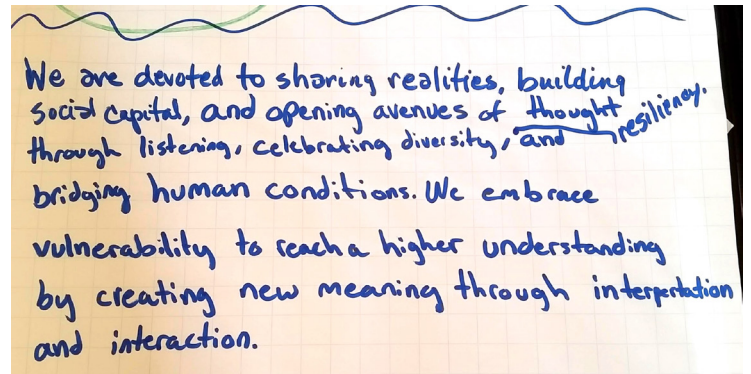 We are devoted to sharing realities, building
social capital, and opening avenues of thought
resiliency.
through listening, celebrating diversity, and
bridging human conditions. We embrace
vulnerability to reach a higher understanding
by creating new meaning through interpertation
and interaction.